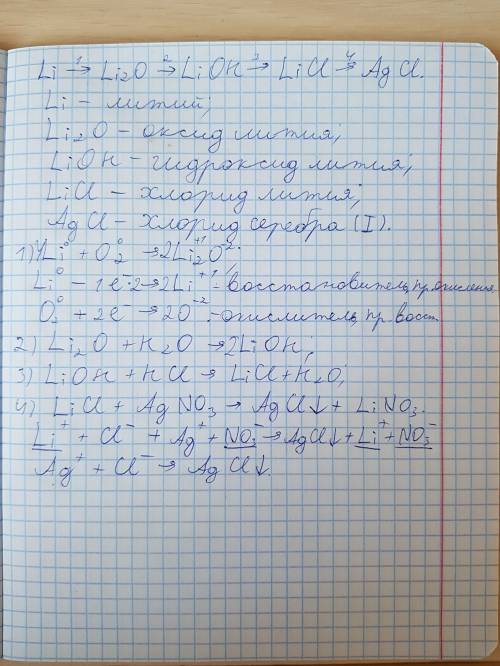 Li 1→ Li₂O 2→ LiOH 3→ LiCl 4→ AgCl.
Li – литий;
Li₂O – оксид лития;
LiOH – гидроксид лития;
LiCl – хлорид лития;
AgCl – хлорид серебра (I).
1) 4Li⁰ + O₂⁰ → 2Li₂⁺¹O⁻²;
Li⁰ – 1e⁻ 2→ 2Li⁺¹ – восстановитель, пр. окисления
O₂⁰ + 2e⁻ → 2O⁻² – окислитель, пр. восст.
2) Li₂O + H₂O → 2LiOH;
3) LiOH + HCl → LiCl + H₂O;
4) LiCl + AgNO₃ → AgCl↓ + LiNO₃.
Li⁺ + Cl⁻ + Ag⁺ + NO₃⁻ → AgCl↓ + Li⁺ + NO₃⁻
Ag⁺ + Cl⁻ → AgCl↓.